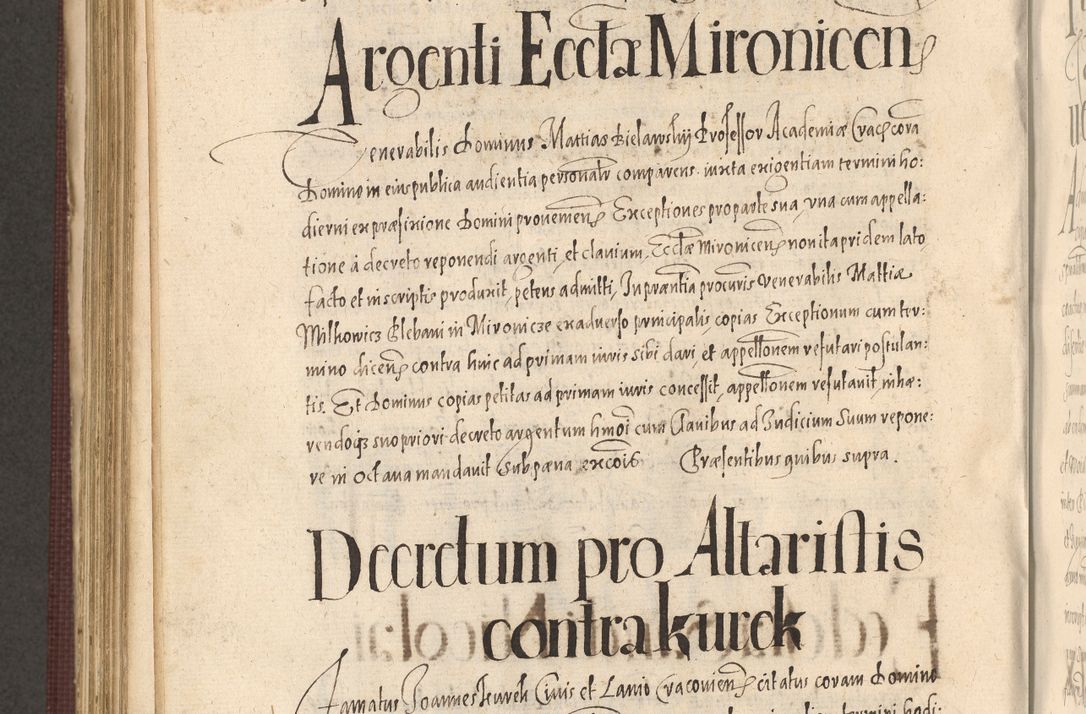 Argenti Eccłæ Mironicen
Venerabilis Dominus Mattias Bielawskÿ Professor Academiæ Crac: cora
Domino in eius publica audientia personalr comparens iuxta exigentiam termini ho:
dierni ex præfixione Domini provenien Exceptiones pro parte sua, vna cum appella:
tione à decreto reponendi argenti, et clavium Eccłæ Mironicen non ita pridem lato
facto et in scriptis produxit, petens admitti, In præntia procuris Venerabilis Mattiæ
Milkowicz Plebani in Mironicze ex adverso principalis copias Exceptionum cum ter:
mino dicen contra hinc ad primam iuris sibi dari, et appellonem refutari postulan:
tis. Et Dominus copias petitas ad primam iuris concessit, appellonem refutavit, inhæ:
rendoq3 suo priori decreto argentum hmoi cum Clavibus ad Iudicium Suum repone:
re in octava mandavit sub pæna excois Præsentibus quibus supra.
Decretum pro Altaristis
contra kurek
Famatus Joannes kurek Civis et Lanio Cracovien citatus coram Domino